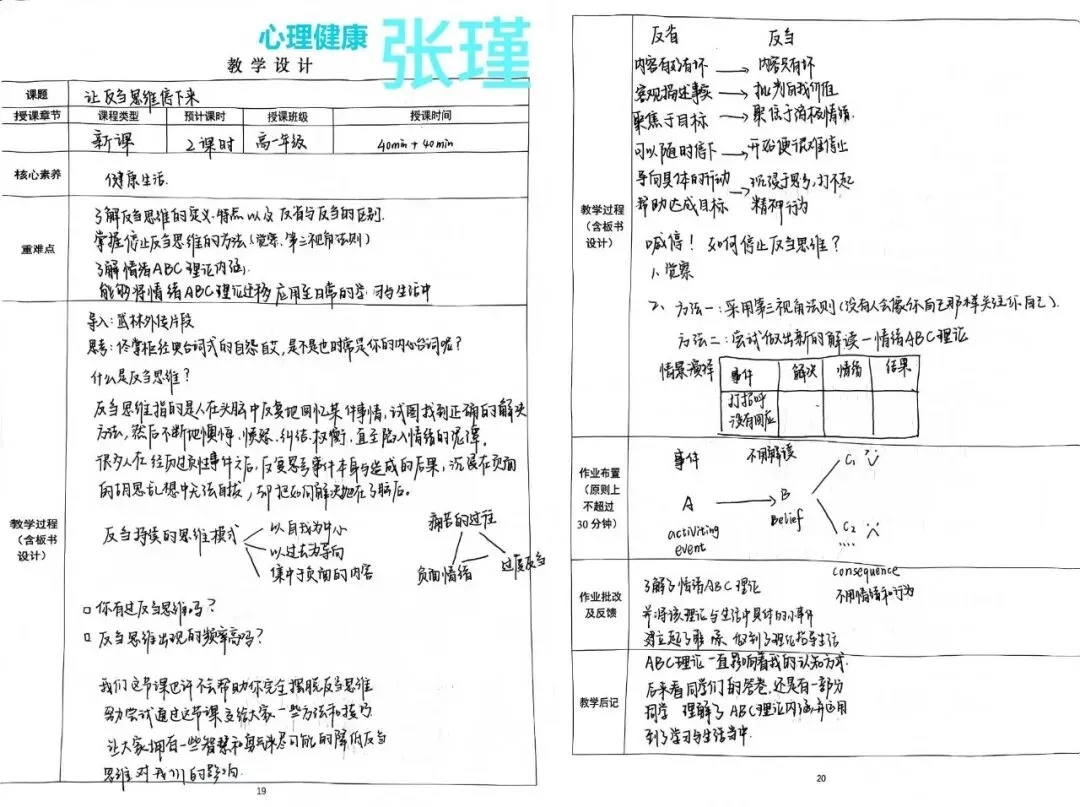 心理健康
张瑾
教学设计
课题 让反刍思维停下来
授课章节 课程类型 预计课时 授课班级 授课时间
新课 2课时 高一年级 40min + 40min
核心素养 健康生活.
重难点
了解反刍思维的定义、特点以及反省与反刍的区别.
掌握停止反刍思维的方法(觉察、第三视角法则)
了解情绪ABC理论内涵.
能够将情绪ABC理论迁移应用至日常的学习与生活中
教学过程
(含板书
设计)
导入: 武林外传片段
思考: 佟掌柜经典台词式的自怨自艾, 是不是也时常是你的内心台词呢?
什么是反刍思维?
反刍思维指的是人在头脑中反复地回忆某件事情, 试图找到正确的解决
方法, 然后不断地懊悔、愤怒、纠结、权衡, 直至陷入情绪的泥潭.
很多人在经历过负性事件之后, 反复思考事件本身与造成的后果, 沉浸在负面
的胡思乱想中无法自拔, 却把如何解决抛在了脑后.
反刍持续的思维模式
以自我为中心
以过去为导向
集中于负面的内容
痛苦的过往
负面情绪
过度反刍
□ 你有过反刍思维吗?
□ 反刍思维出现的频率高吗?
我们这节课也许不会帮助你完全摆脱反刍思维
努力尝试通过这节课交给大家一些方法和技巧
让大家拥有一些智慧和勇气来尽可能的降低反刍
思维对我们的影响.
19
教学过程
(含板书
设计)
反省 反刍
内容有好有坏 → 内容只有坏
客观描述事实 → 批判自我价值
聚焦于目标 → 聚焦于消极情绪.
可以随时停下 → 开始便很难停止
导向具体的行动 → 沉浸于思考, 打不起
帮助达成目标 精神行为
喊停! 如何停止反刍思维?
1. 觉察
2、方法一: 采用第三视角法则(没有人会像你自己那样关注你自己).
方法二: 尝试做出新的解读—情绪ABC理论
情景演绎
事件 解决 情绪 结果
打招呼
没有回应
作业布置
(原则上
不超过
30分钟)
事件 不同解读
A → B
activiting
event
Belief
C1
C2
....
consequence
不同情绪和行为
作业批改
及反馈
了解了情绪ABC理论
并将该理论与生活中具体的小事件
建立起了联系, 做到了理论指导生活
教学后记
ABC理论一直影响着我的认知方式.
后来看同学们的答卷, 还是有一部分
同学 理解了ABC理论内涵并运用
到了学习与生活当中.
20